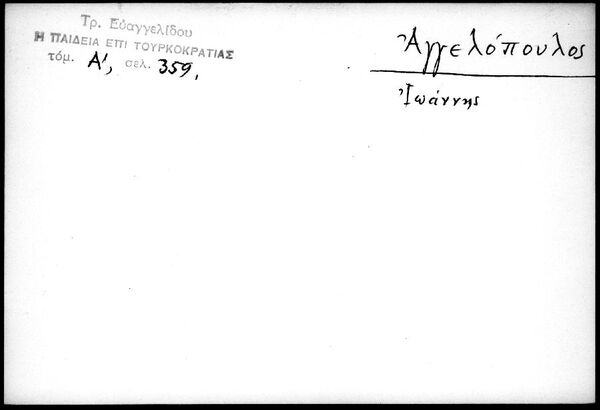 Τρ. Εὐαγγελίδου
Η ΠΑΙΔΕΙΑ ΕΠΙ ΤΟΥΡΚΟΚΡΑΤΙΑΣ
τόμ. Α', σελ. 359,
Ἀγγελόπουλος
Ἰωάννης